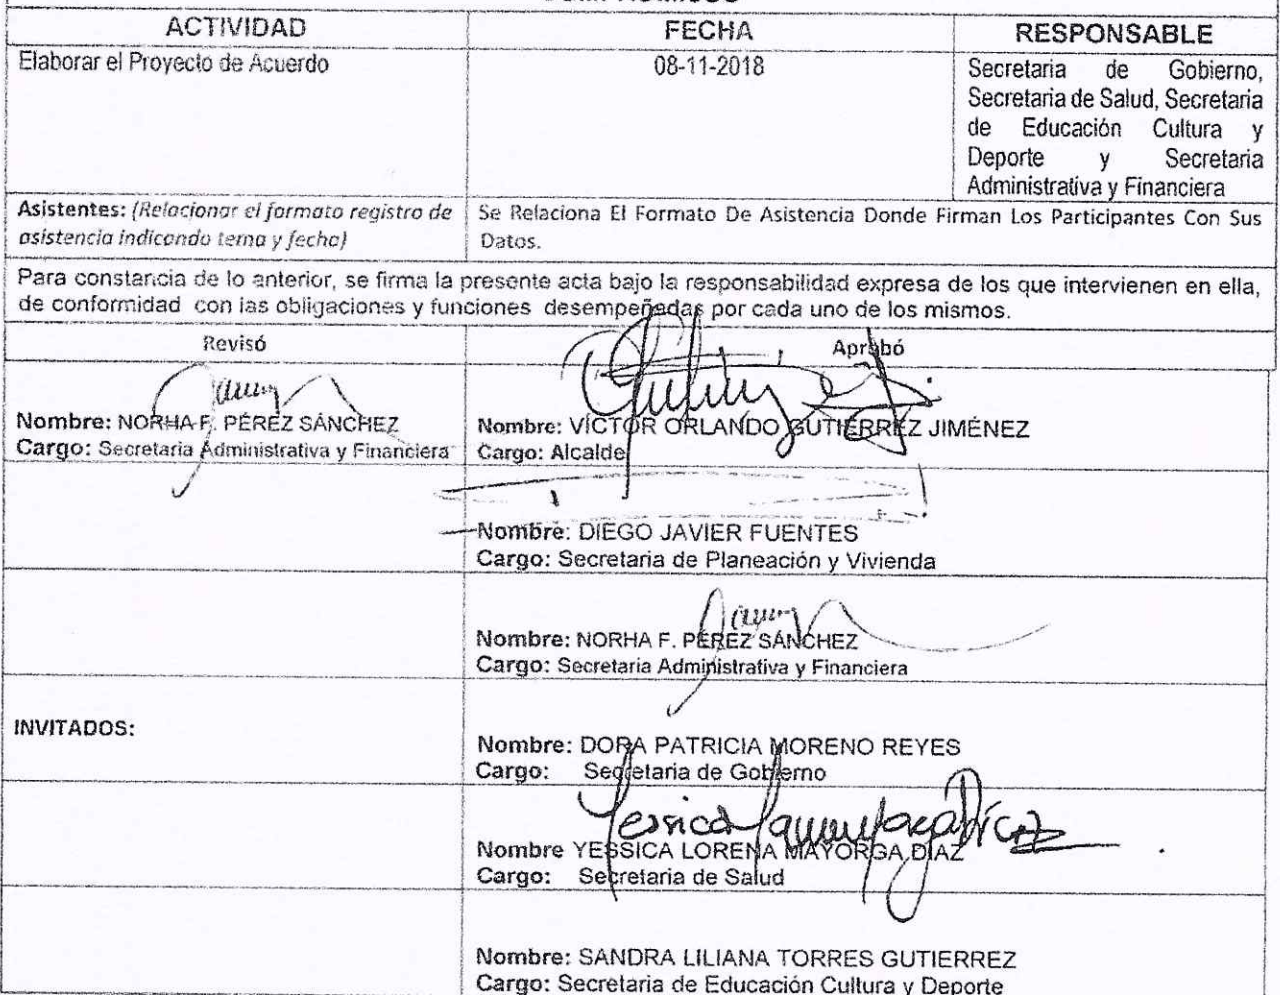 ACTIVIDAD
FECHA
RESPONSABLE
Elaborar el Proyecto de Acuerdo
08-11-2018
Secretaria de Gobierno,
Secretaria de Salud, Secretaria
de Educación Cultura y
Deporte y Secretaria
Administrativa y Financiera
Asistentes: (Relacionar el formato registro de
asistencia indicando tema y fecha)
Se Relaciona El Formato De Asistencia Donde Firman Los Participantes Con Sus
Datos.
Para constancia de lo anterior, se firma la presente acta bajo la responsabilidad expresa de los que intervienen en ella,
de conformidad con las obligaciones y funciones desempeñadas por cada uno de los mismos.
Revisó
Aprobó
Nombre: NORHA F. PÉREZ SÁNCHEZ
Cargo: Secretaria Administrativa y Financiera
Nombre: VÍCTOR ORLANDO GUTIÉRREZ JIMÉNEZ
Cargo: Alcalde
Nombre: DIEGO JAVIER FUENTES
Cargo: Secretaria de Planeación y Vivienda
Nombre: NORHA F. PÉREZ SÁNCHEZ
Cargo: Secretaria Administrativa y Financiera
INVITADOS:
Nombre: DORA PATRICIA MORENO REYES
Cargo: Secretaria de Gobierno
Nombre YESSICA LORENA MAYORGA DIAZ
Cargo: Secretaria de Salud
Nombre: SANDRA LILIANA TORRES GUTIERREZ
Cargo: Secretaria de Educación Cultura y Deporte